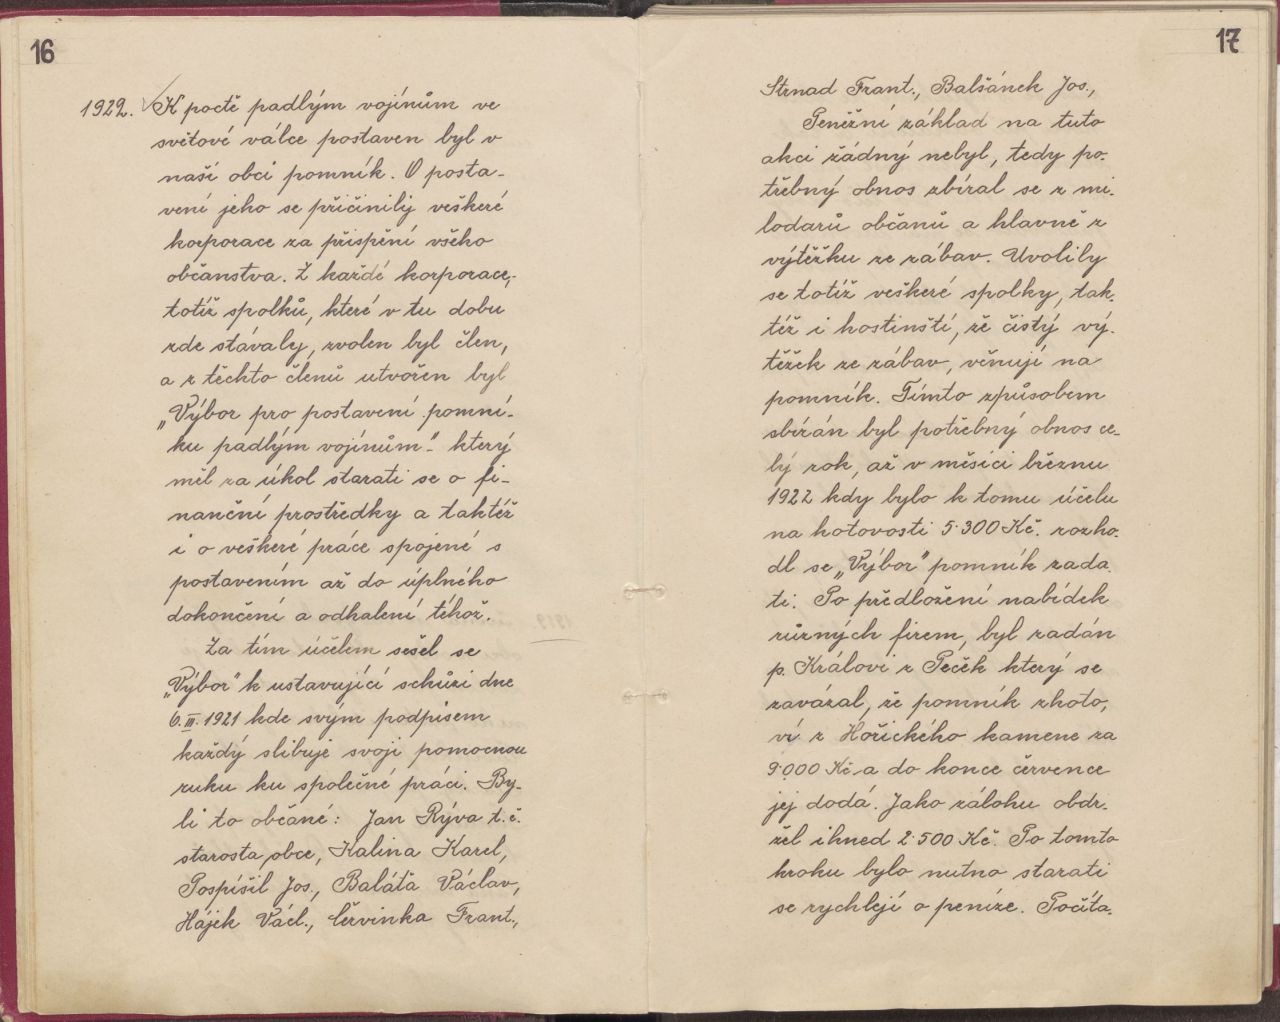 16
1922. K poctě padlým vojínům ve
světové válce postaven byl v
naší obci pomník. O posta-
vení jeho se přičinily veškeré
korporace za přispění všeho
občanstva. Z každé korporace,
totiž spolků, které v tu dobu
zde stávaly, zvolen byl člen,
a z těchto členů utvořen byl
„Výbor pro postavení pomní-
ku padlým vojínům"- který
měl za úkol starati se o fi-
nanční prostředky a taktéž
i o veškeré práce spojené s
postavením až do úplného
dokončení a odhalení téhož.
Za tím účelem sešel se
„Výbor" k ustavující schůzi dne
6.III.1921 kde svým podpisem
každý slibuje svoji pomocnou
ruku ku společné práci. By-
li to občané: Jan Rýva t.č.
starosta obce, Kalina Karel,
Pospíšil Jos., Baláťa Václav,
Hájek Václ., Červinka Frant.,
17
Strnad Frant., Balšánek Jos.,
Peněžní základ na tuto
akci žádný nebyl, tedy po-
třebný obnos zbíral se z mi-
lodarů občanů a hlavně z
výtěžku ze zábav. Uvolily
se totiž veškeré spolky, tak-
též i hostinští, že čistý vý-
těžek ze zábav, věnují na
pomník. Tímto způsobem
sbírán byl potřebný obnos ce-
lý rok, až v měsíci březnu
1922 kdy bylo k tomu účelu
na hotovosti 5·300 Kč. rozho-
dl se „Výbor" pomník zada-
ti. Po předložení nabídek
různých firem, byl zadán
p. Královi z Peček který se
zavázal, že pomník zhoto-
ví z Hořického kamene za
9·000 Kč a do konce července
jej dodá. Jako zálohu obdr-
žel ihned 2·500 Kč. Po tomto
kroku bylo nutno starati
se rychleji o peníze. Počíta-